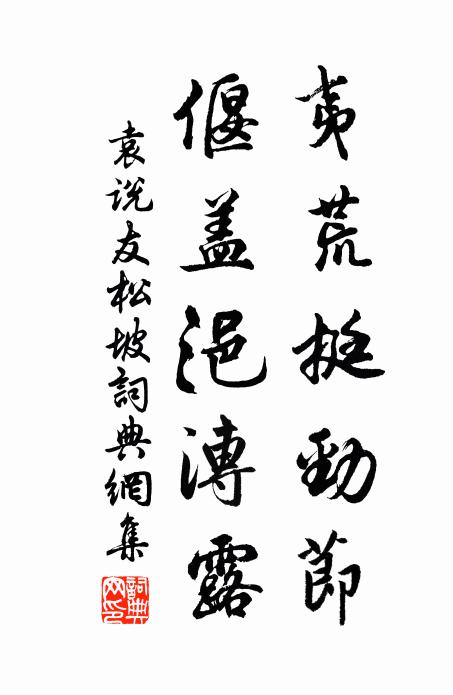 夷荒挺勁節
偃盖浥漙露
袁说友松坡詞典網集
詞典网印